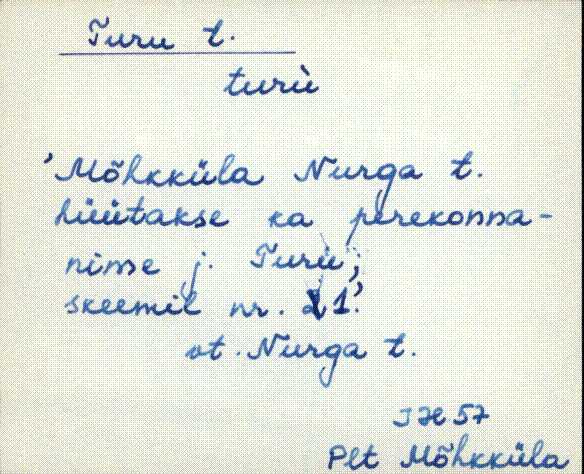 Turu t.
turù
'Mõhkküla Nurga t.
hüütakse ka perekonna-
nime j. Turù;
skeemil nr. 21.'
vt. Nurga t.
JH 57
Plt Mõhkküla